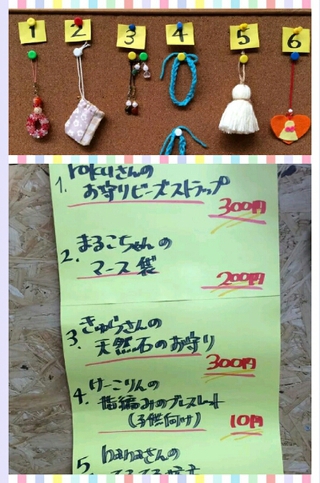 1 2 3 4 5 6
1. rokuさんの
お守りビーズストラップ
300円
2. まるこちゃんの
マース袋
200円
3. きゅうさんの
天然石のお守り
300円
4. けーこりんの
指編みのブレスレット
(子供向け) 10円
5 hanaさんの